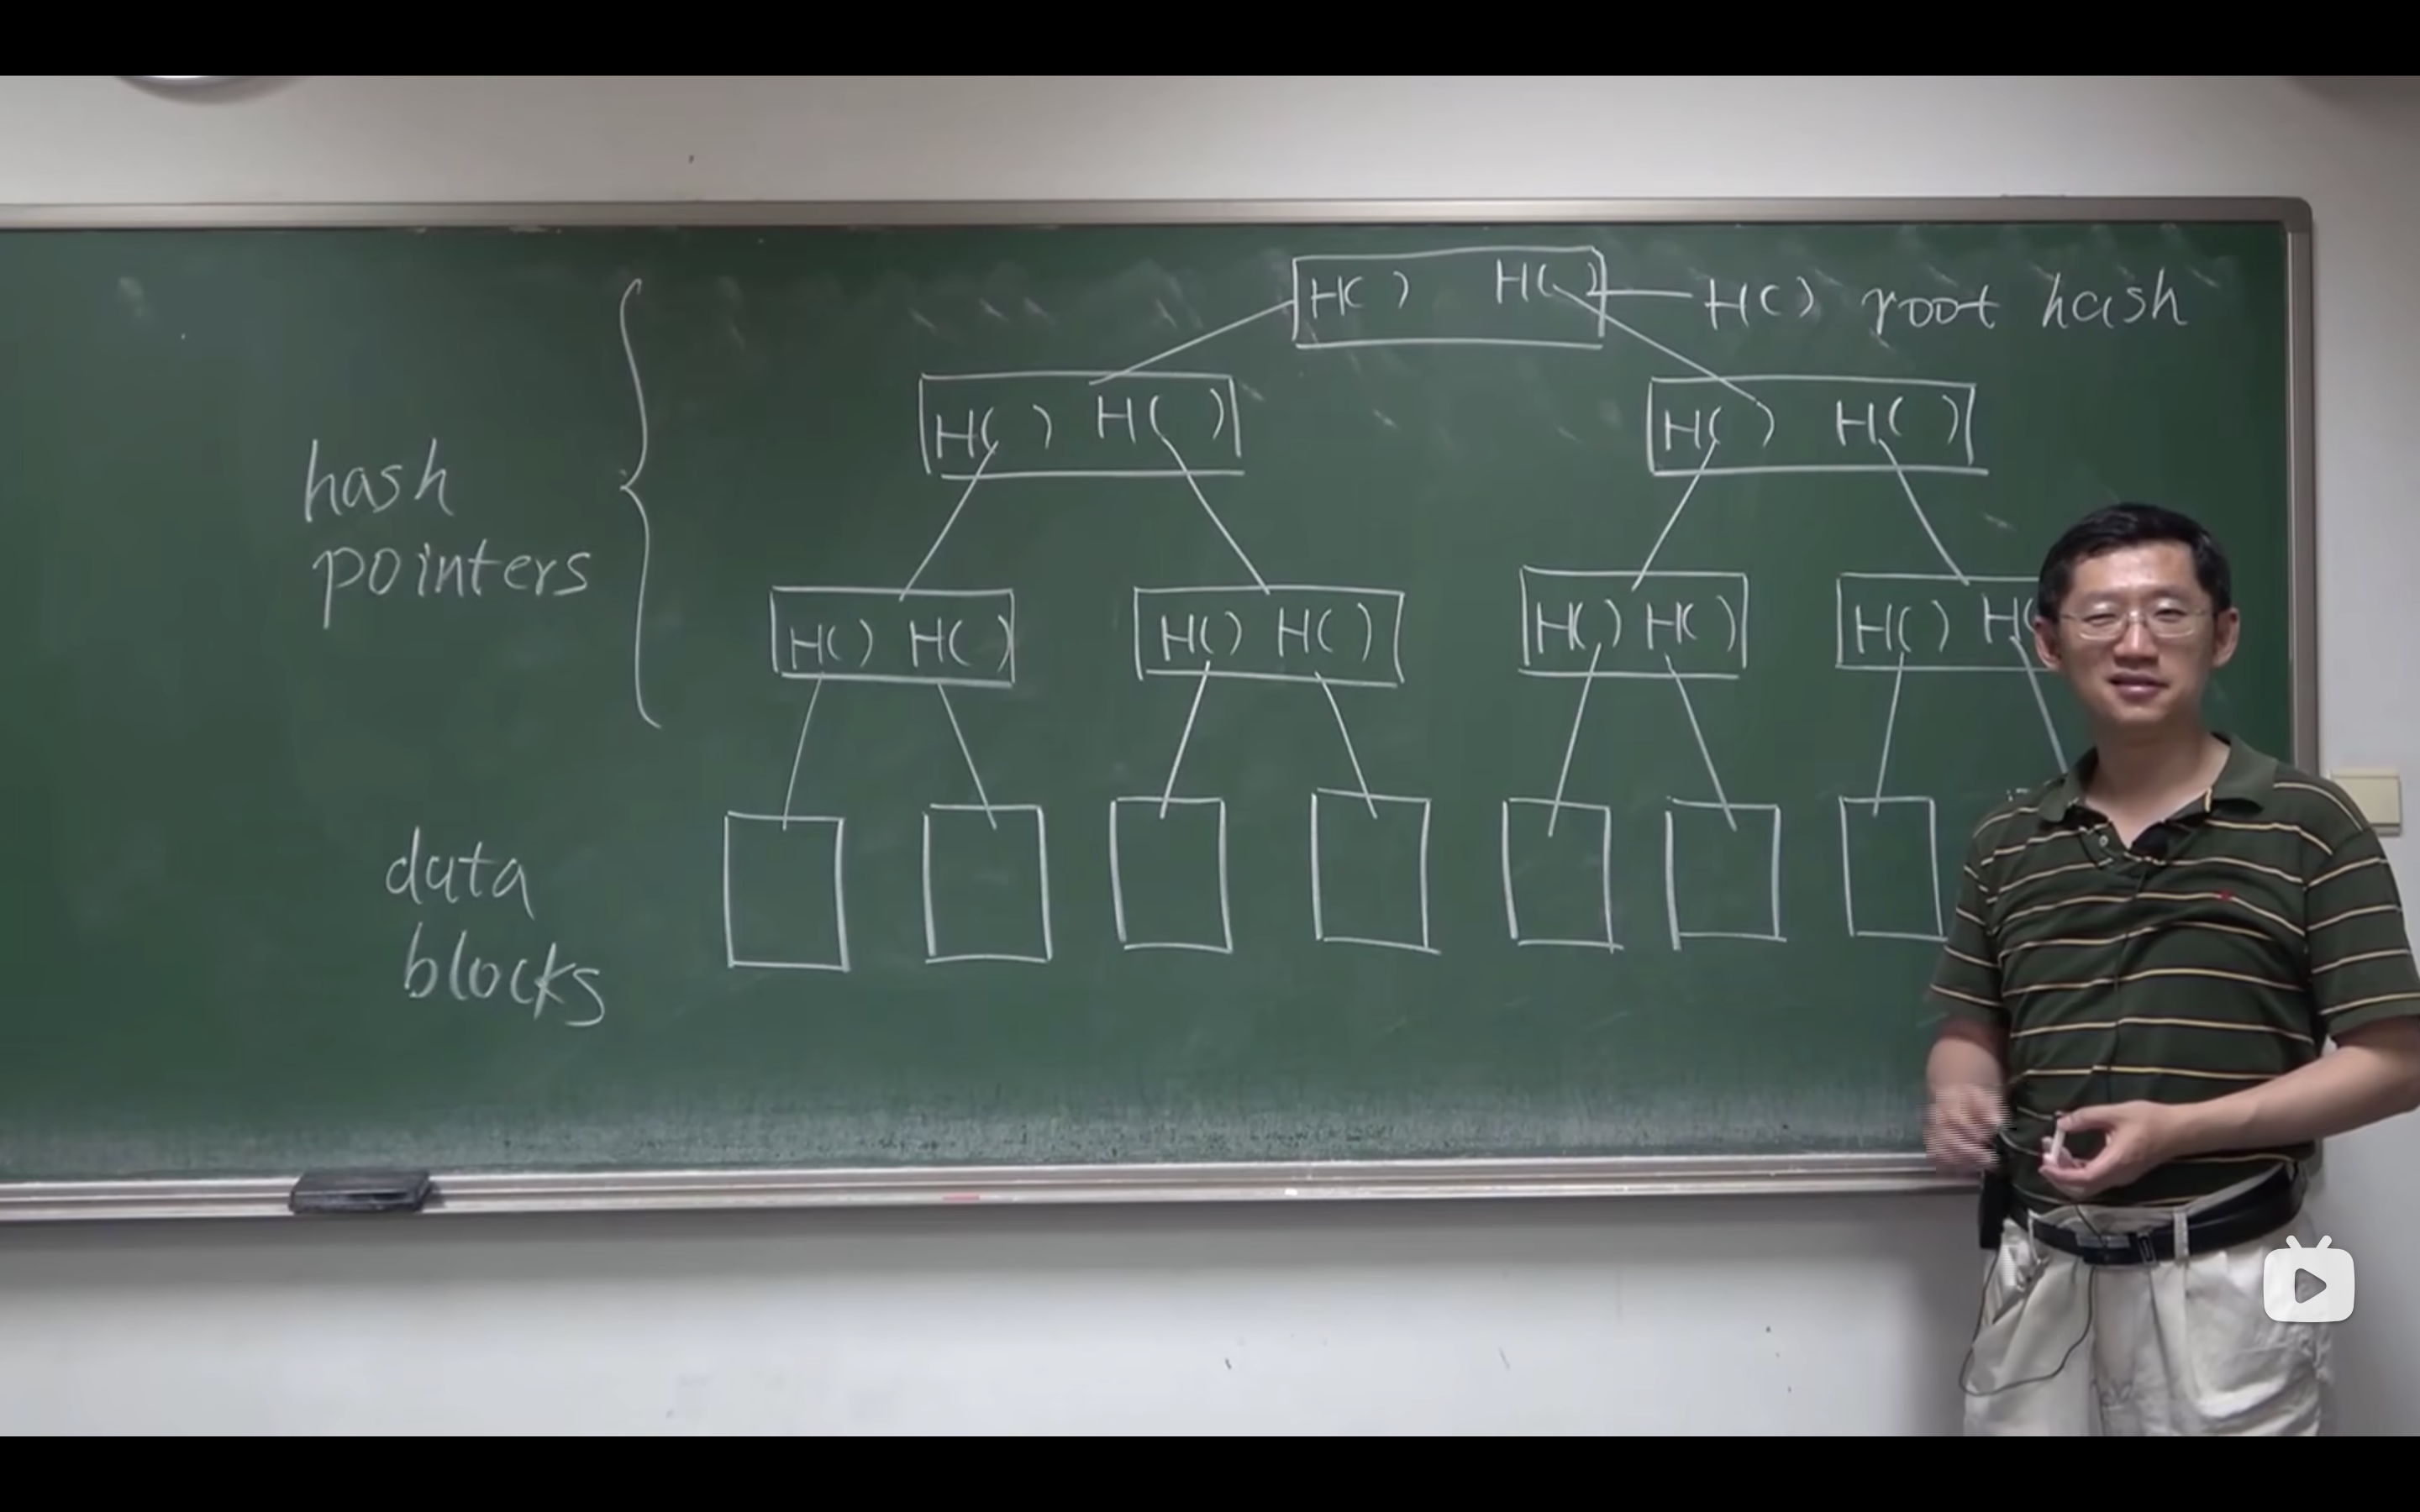 H( ) H( ) H( ) root hash
H( ) H( ) H( ) H( )
hash
pointers
H( ) H( ) H( ) H( ) H( ) H( ) H( ) H(
data
blocks